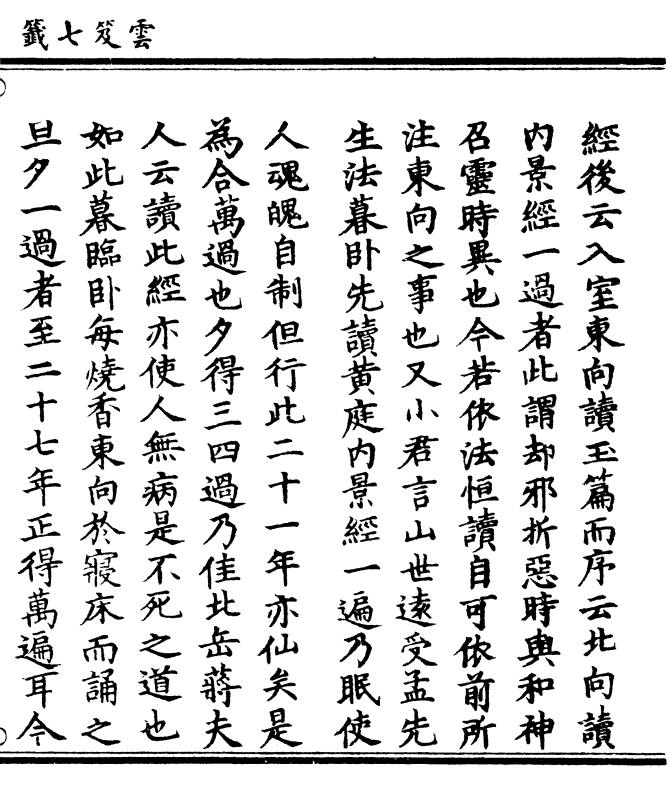 雲笈七籤
經後云入室東向讀玉篇而序云北向讀
内景經一過者此謂却邪折惡時與和神
召靈時異也今若依法恒讀自可依前所
注東向之事也又小君言山世遠受孟先
生法暮卧先讀黄庭内景經一遍乃眠使
人魂魄自制但行此二十一年亦仙矣是
為合萬過也夕得三四過乃佳北岳蔣夫
人云讀此經亦使人無病是不死之道也
如此暮臨卧每燒香東向於寢床而誦之
旦夕一過者至二十七年正得萬遍耳今